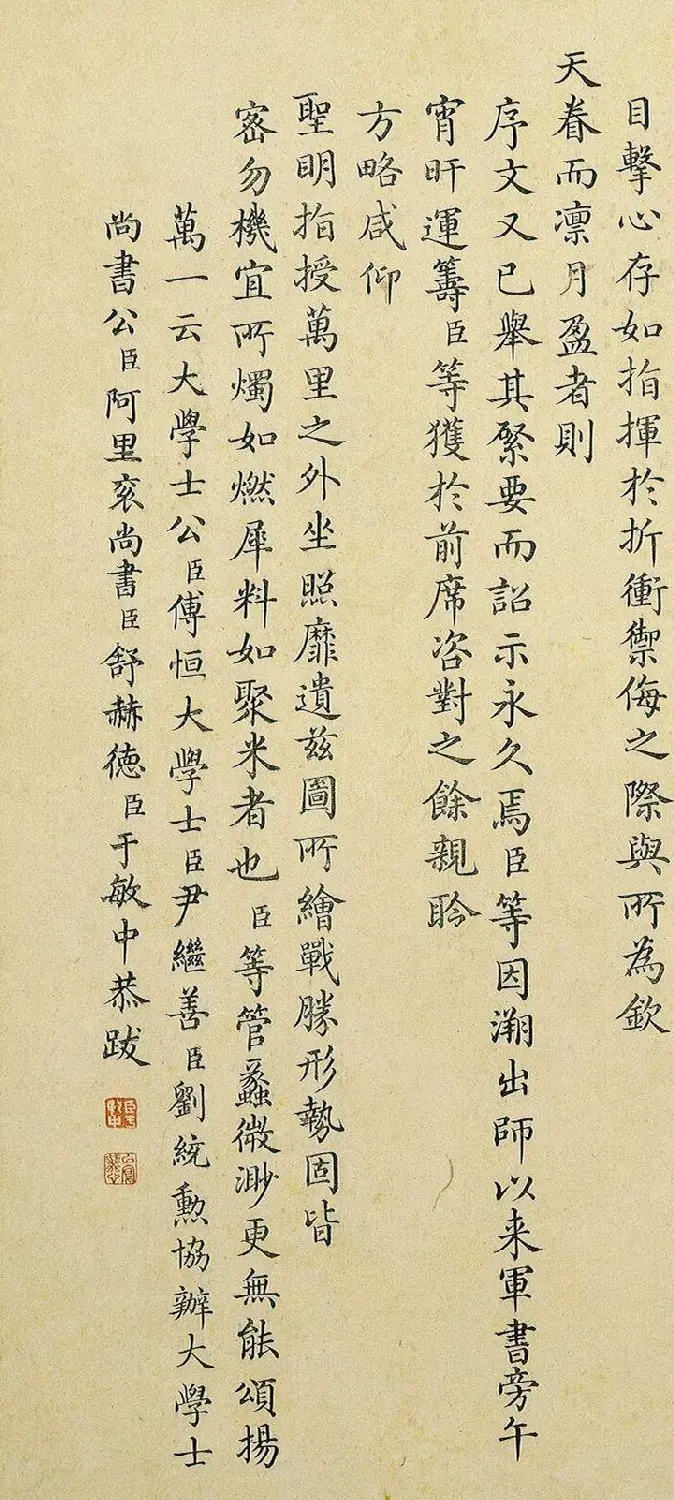 目擊心存如指揮於折衝禦侮之際與所為欽
天眷而凛月盈者則
序文又已舉其緊要而詔示永久焉臣等因溯出師以来軍書旁午
宵旰運籌臣等獲於前席咨對之餘親聆
方略咸仰
聖明指授萬里之外坐照靡遺兹圖所繪戰勝形勢固皆
宻勿機宜所燭如燃犀料如聚米者也臣等管蠡微渺更無能頌揚
萬一云大學士公臣傅恒大學士臣尹繼善臣劉統勲協辦大學士
尚書公臣阿里衮尚書臣舒赫德臣于敏中恭跋